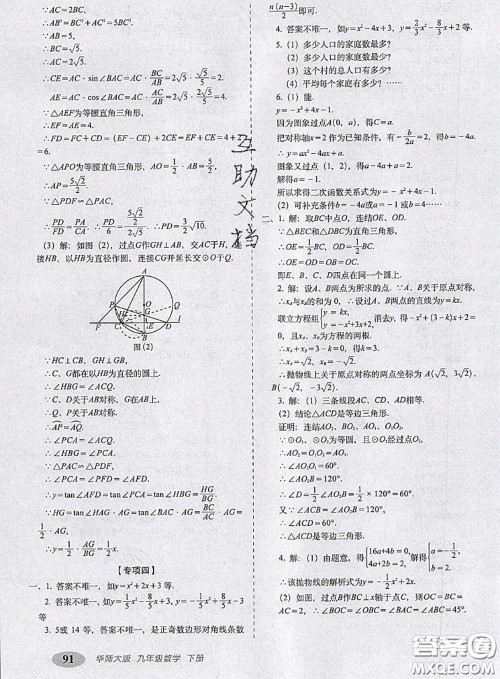 ∵AC=2√5,
∴AB²=BC²+AC²
∴AB=5.
∴CE=AC·sin∠BAC=AC·BC/AB=2√5·√5/5=2.
AE=AC·cos∠BAC=AC·AC/AB=2√5·2√5/5=4.
∵△AEF为等腰直角三角形,
∴EF=AE=4.
∴FD=FC+CD=(EF-CE)+2CE=EF+CE=4+2=6.
∵△APO为等腰直角三角形, AO=1/2·AB=5/2,
∴AP=5√2/2.
∴PD/FD=PA/CA. ∴PD/6=(5√2/2)/(2√5). ∴PD=3/2√10.
(3) 解: 如图 (2), 过点G作GH⊥AB, 交AC于H, 连接HB, 以HB为直径作圆, 连接CG并延长交⊙O于Q.
图 (2)
∵HC⊥CB, GH⊥GB,
∴C、G都在以HB为直径的圆上.
∴∠HBG=∠ACQ.
∵C、D关于AB对称, G在AB上,
∴Q、P关于AB对称.
∴AP=AQ.
∴∠PCA=∠ACQ. ∴∠HBG=∠PCA.
∵△PCA∽△PFD, ∴∠PCA=∠PFD.
∴∠PFD=∠HBG.
∵y=tan∠AFD=tan∠PFD=tan∠HBG=HG/BG
HG=tan∠HAG·AG=tan∠BAC·AG=BC/AC·AG=1/2·AG,
∴y=1/2·AG/BG=1/2x.
【专项四】
一、1. 答案不唯一, 如y=x²+2x+3 等.
2. 答案不唯一, 如y=1/5x²-8/5x+3, y=-1/5x²+8/5x-3等.
3. 5或 14 等, 答案不唯一, 是正奇数边形对角线条数
n(n-3)/2即可.
4. 答案不唯一, 如y=x²-4x+3, y=2/3x²-8/3x+2等.
5. (1) 多少人口的家庭数最多?
(2) 多少人口的家庭数最少?
(3) 这个村的总人口有多少?
(4) 平均每个家庭有多少人?
6. (1) 能.
y=1/2x²-4x+6.
因为图象过点A(0, a), 得c=a.
把对称轴x=2作为已知条件, 有-b/2a=2, 得b=-4a.
∴y=ax²-4ax+a.
图象又过点 (1, 2), 得a-4a+a=2.
解得a=-1.
所以求得二次函数关系式为y=-x²+4x-1.
(2) 可补充条件b=-4a或a=-1或b=4或……
二、1. 解: 取BC中点O, 连结OE、OD.
∵△BEC和△DBC为直角三角形,
∴OE=1/2BC, OD=1/2BC.
∴OE=OD=OB=OC.
即E、B、C、D四点在同一个圆上.
2. 解: 设A、B两点为所求的点. ∵A、B关于原点对称,
∴xA与xB的和为 0, 设过A、B两点的直线为y=kx.
联立方程组{y=kx, y=-x²+3x+2, 消去y, 得-x²+(3-k)x+2=0, xA、xB为方程的根.
∴xA+xB=3-k=0. ∴k=3.
∴x=±√2.
∴抛物线上关于原点对称的两点坐标为 A(√2, 3√2), B(-√2, -3√2).
3. 解: (1) 三条线段AC、CD、AD相等.
(2) 结论△ACD是等边三角形.
证明: 连结AO₁、BO₁、AO₂、BO₂、O₁O₂.
∵⊙O₁、⊙O₂为等圆, 且⊙O₁经过点O₂,
∴AO₁=AO₂=O₁O₂.
∴∠AO₁O₂=60°.
∴∠AO₂B=120°.
∴∠D=1/2∠AO₂B=1/2×120°=60°.
∠C=1/2∠AO₁B=1/2×120°=60°.
∴△ACD是等边三角形.
4. 解: (1) 由题意, 得{16a+4b=0, 4a+2b=2. 解得{a=-1/2, b=2.
∴该抛物线的解析式为y=-1/2x²+2x.
(2) 过点C作x轴的垂线, 垂足为点E, 则OC=BC=AC=2. ∴OC=BC=AC.
91 华师大版 九年级数学 下册
互助文档
答案圈
MXQE.COM